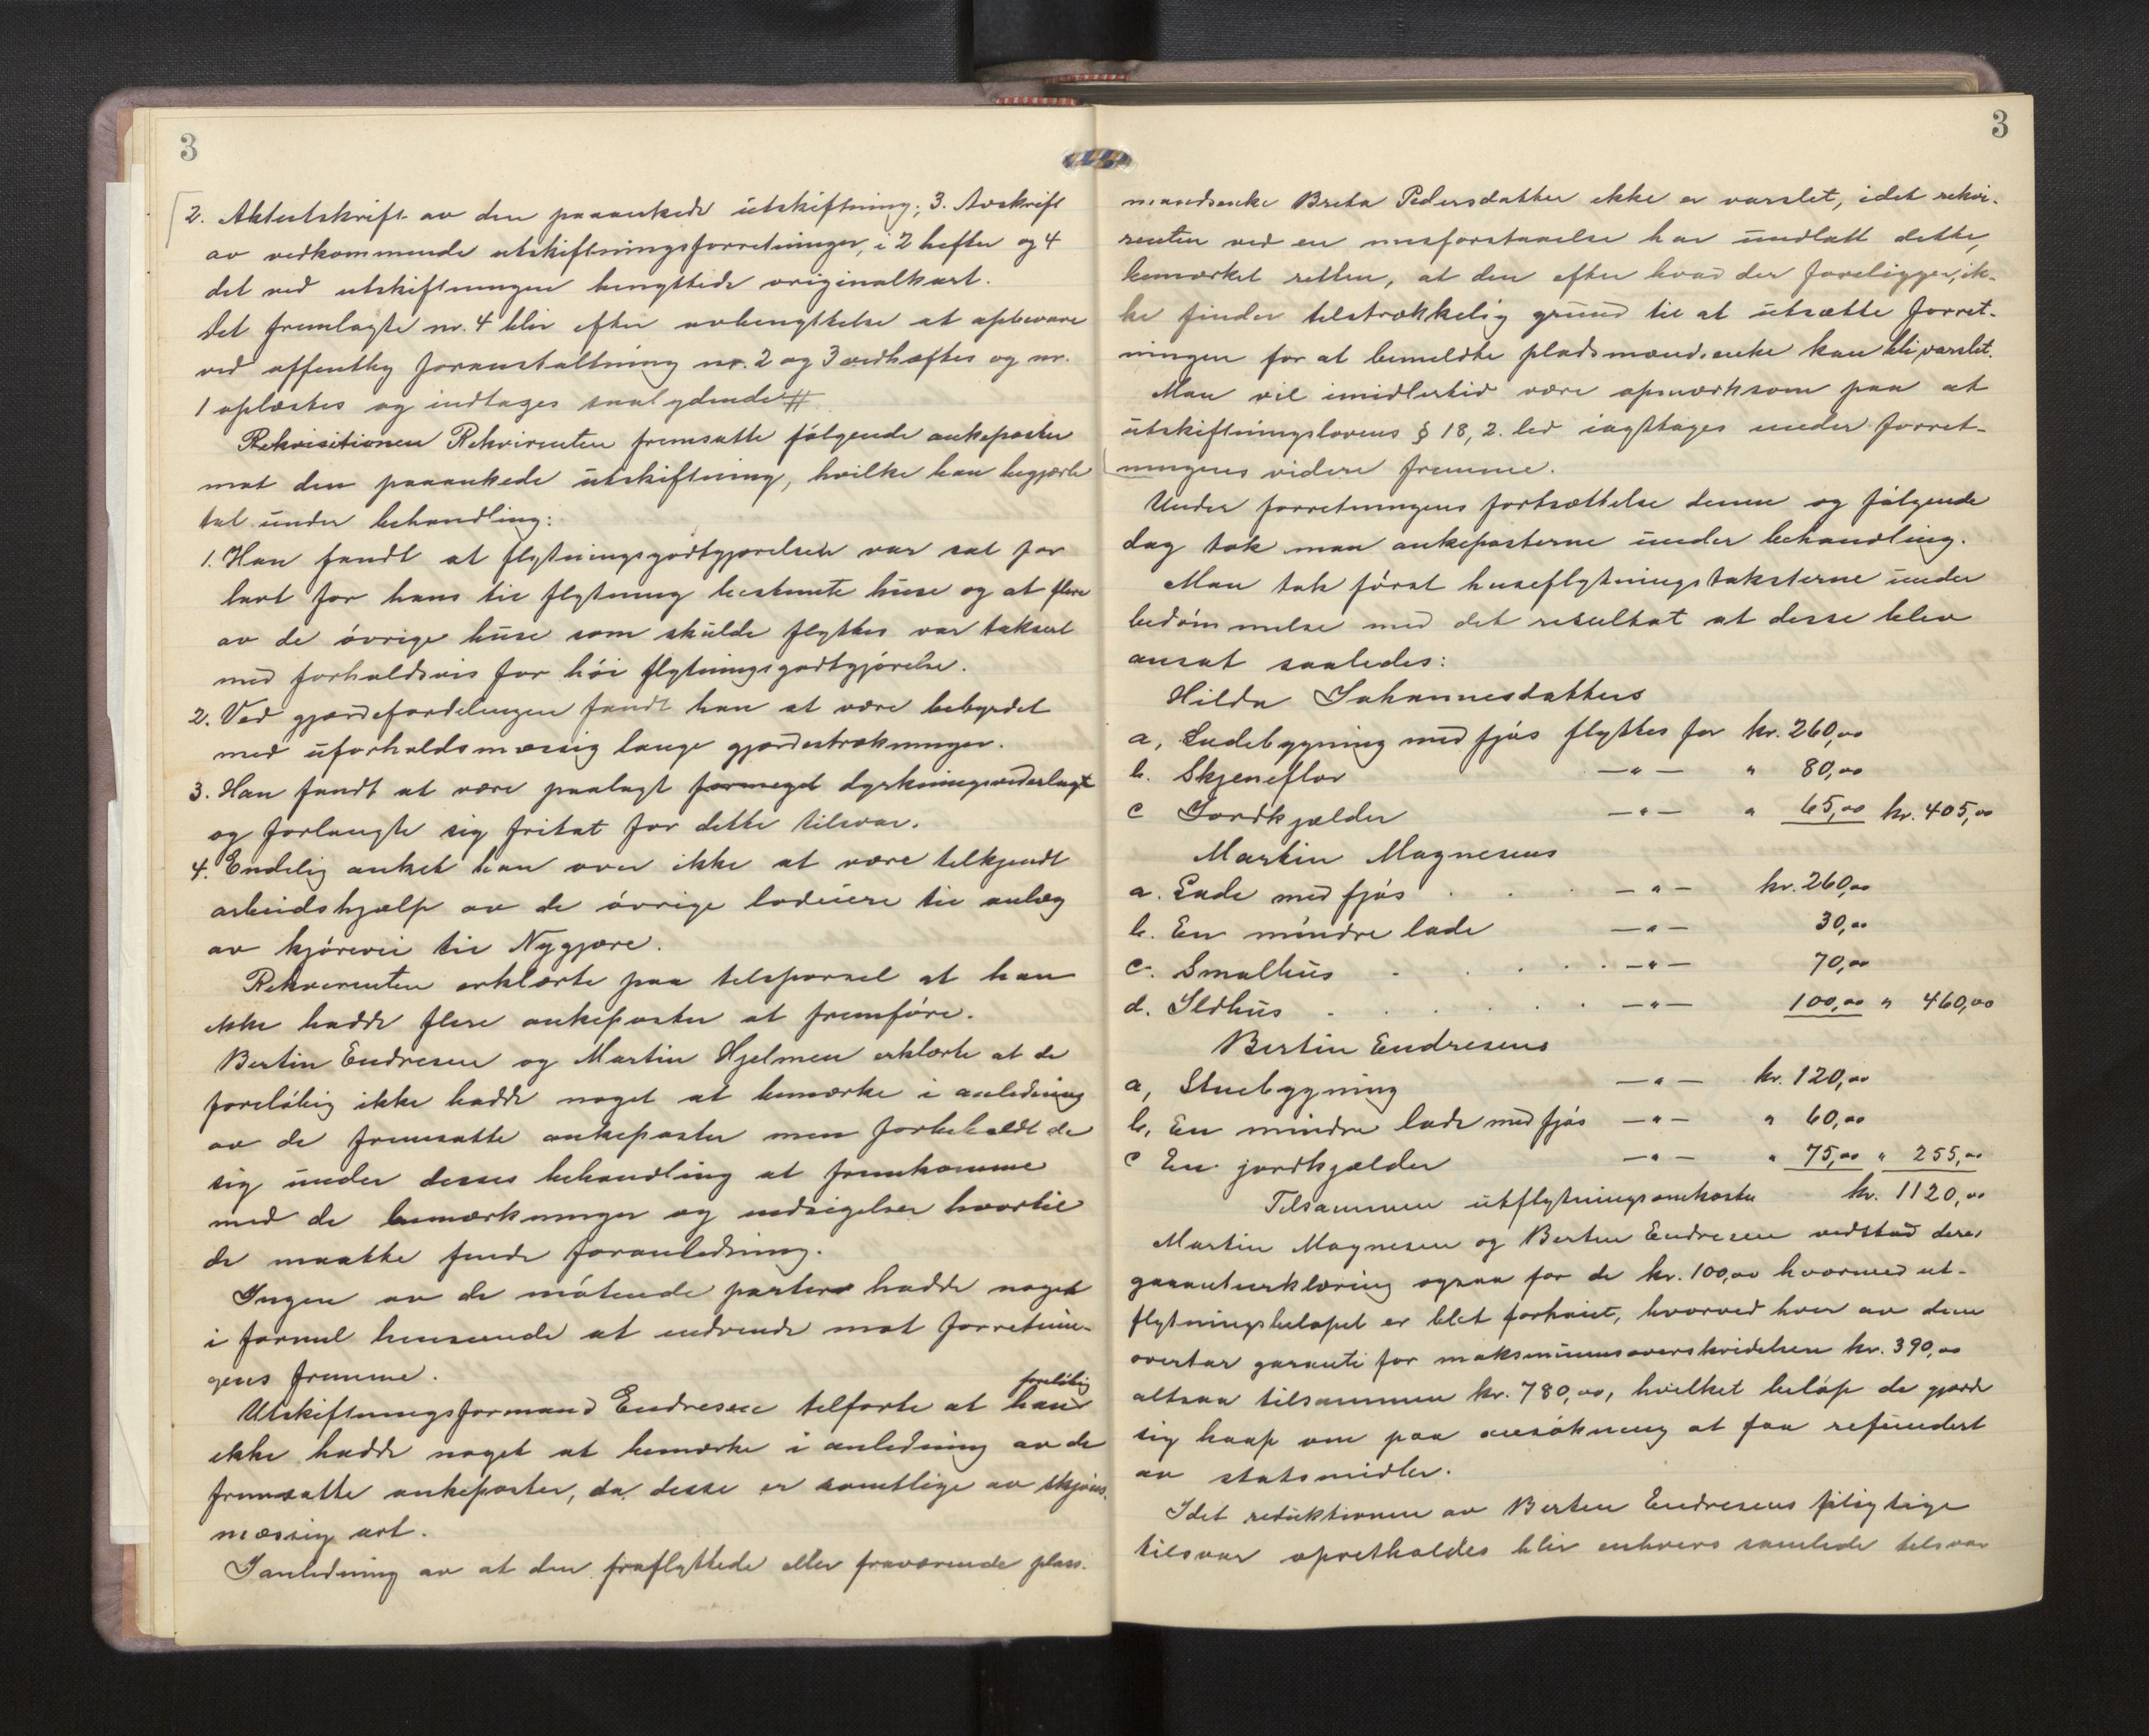 3
2. Aktutskrift av den paaankede utskiftning; 3. Avskrift
av vedkommende utskiftningsforretninger, i 2 hefter og 4
det ved utskiftningen benyttede originalkart.
Det fremlagte nr. 4 blir efter avbenyttelse at opbevare
ved offentlig foranstaltning nr. 2 og 3 vedhæftes og nr.
1 oplæstes og indtages saalydende #
Rekvisitionen Rekvirenten fremsatte følgende ankeposter
mot den paaankede utskiftning, hvilke han begjærte
tat under behandling:
1. Han fandt at flytningsgodtgjørelsen var sat for
lavt for hans til flytning bestemte huse og at flere
av de øvrige huse som skulde flyttes var taksert
med forholdsvis for høi flytningsgodtgjørelse.
2. Ved gjærdefordelingen fandt han at være bebyrdet
med uforholdsmæssig lange gjærdestrækninger.
3. Han fandt at være paalagt formeget dyrkningsvederlagt
og forlangte sig fritat for dette tilsvar.
4. Endelig anket han over ikke at være tilkjendt
arbeidshjælp av de øvrige lodeiere til anlæg
av kjørevei til Nygjære.
Rekvirenten erklærte paa tilspørsel at han
ikke hadde flere ankeposter at fremføre.
Bertin Endresen og Martin Hjelmen erklærte at de
foreløbig ikke hadde noget at bemærke i anledning
av de fremsatte ankeposter men forbeholdt de
sig under disses behandling at fremkomme
med de bemærkninger og indsigelser hvortil
de maatte finde foranledning.
Ingen av de møtende parter hadde noget
i formel henseende at indvende mot forretnin-
gens fremme.
Utskiftningsformand Endresen tilførte at han foreløbig
ikke hadde noget at bemærke i anledning av de
fremsatte ankeposter, da disse er samtlige av skjøns-
mæssig art.
I anledning av at den fraflyttede eller fraværende plass-
3
mandsenke Breta Pedersdatter ikke er varslet, idet rekvi-
renten ved en misforstaaelse har undlatt dette,
bemærket retten, at den efter hvad der foreligger, ik-
ke finder tilstrækkelig grund til at utsætte forret-
ningen for at bemeldte pladsmandsenke kan bli varslet.
Man vil imidlertid være opmerksom paa at
utskiftningslovens § 18, 2. led iagttages under forret-
ningens videre fremme.
Under forretningens fortsættelse denne og følgende
dag tok man ankeposterne under behandling.
Man tok først huseflytningstaksterne under
bedømmelse med det resultat at disse blev
ansat saaledes:
Hilda Johannesdatters
a, Ladebygning med fjøs flyttes for kr. 260,00
b. Skjeneflor —"— " 80,00
c Jordkjælder —"— " 65,00 kr. 405,00
Martin Magnesens
a. Lade med fjøs . . . —"— kr. 260,00
b. En mindre lade —"— 30,00
c. Smalhus . . . . . —"— 70,00
d. Ildhus . . . . . —"— 100,00 " 460,00
Bertin Endresens
a, Stuebygning —"— kr. 120,00
b, En mindre lade med fjøs —"— " 60,00
c En jordkjælder —"— " 75,00 " 255,00
Tilsammen utflytningsomkoster kr. 1120,00
Martin Magnesen og Bertin Endresen vedstod deres
garantierklæring ogsaa for de kr. 100,00 hvormed ut-
flytningsbeløpet er blit forhøiet, hvorved hver av dem
overtar garanti for maksimumsoverskridelsen kr. 390,00
altsaa tilsammen kr. 780,00, hvilket beløp de gjorde
sig haap om paa ansøkning at faa refundert
av statsmidler.
Idet reduktionen av Bertin Endresens pligtige
tilsvar opretholdes blir enhvers samlede tilsvar